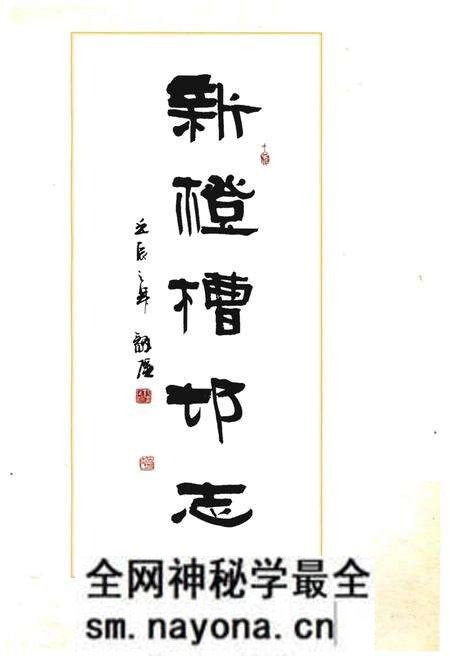 新橙槽邨志
壬辰之年
全网神秘学最全
sm.nayona.cn